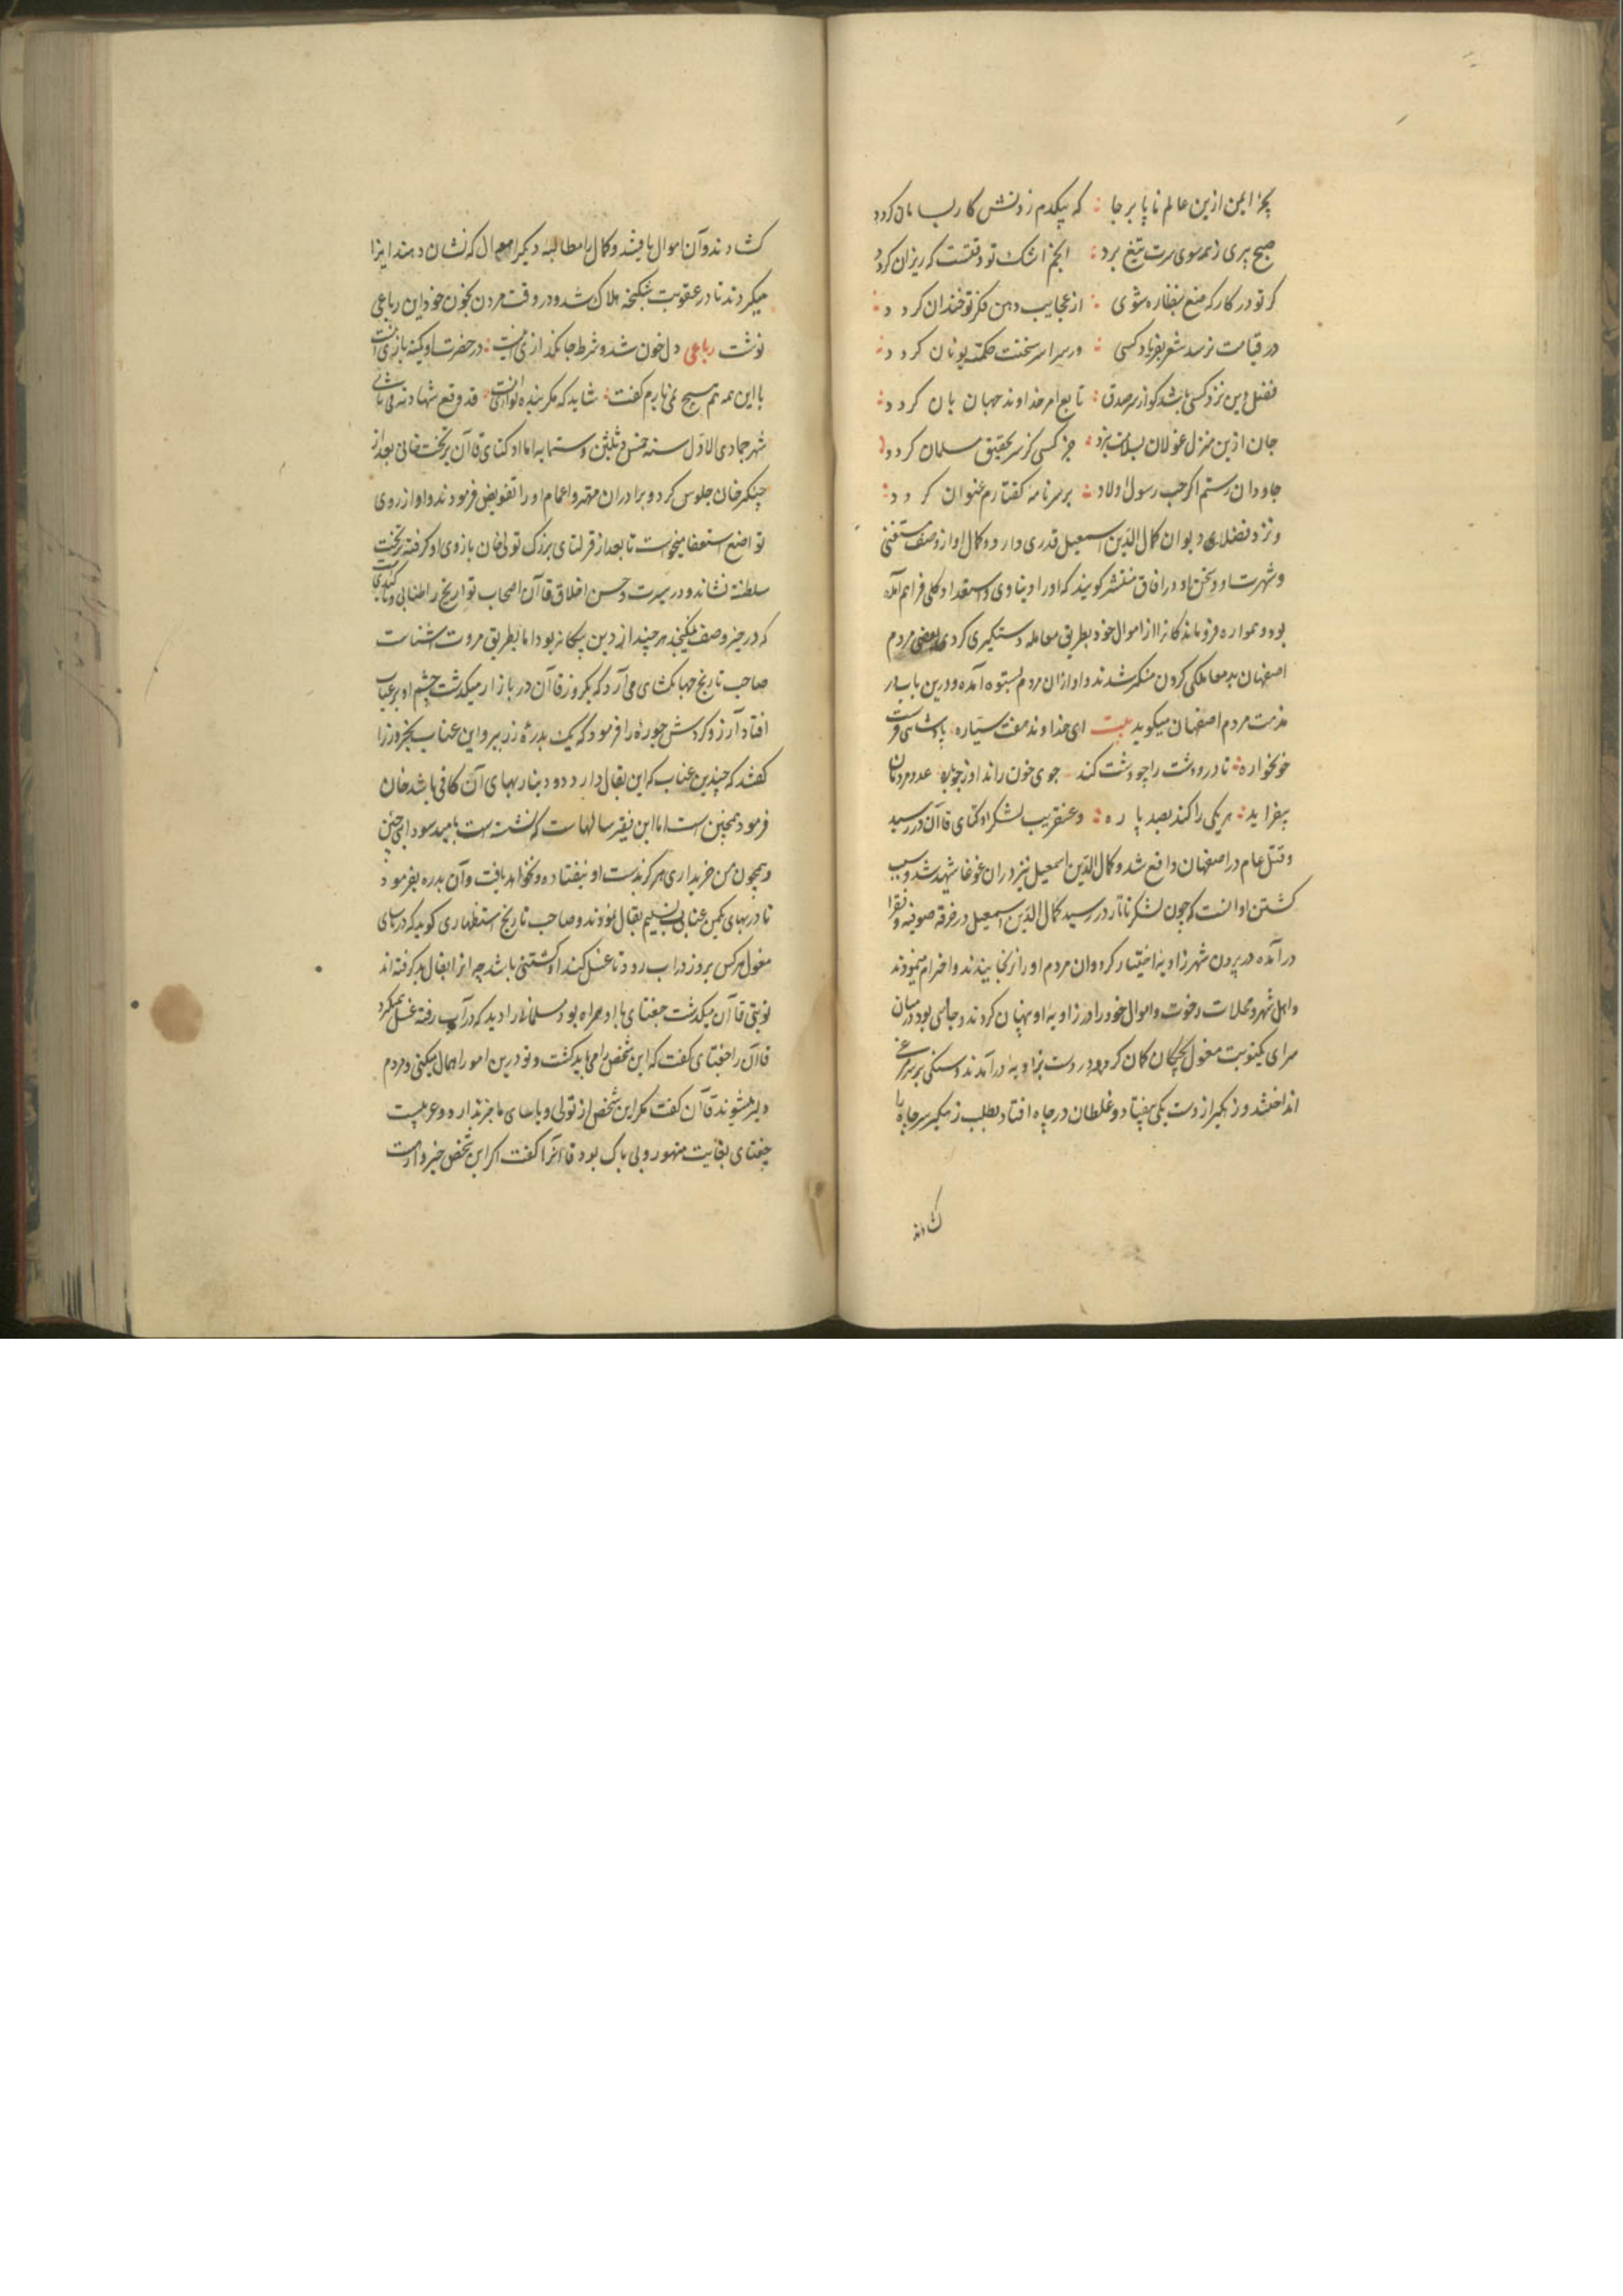 چه ایمن ازین عالم ناپابرجا که بیکدم زدنش کار بسامان کردد
صبح پیری ز همه سوی سرت تیغ برد انجم اشک تو وقتست که ریزان کردد
کر تو در کارکه صنع بنظاره شوی از عجایب دهن فکر تو خندان کردد
در قیامت نرسد شعر بفریاد کسی ور سراسر سخنت حکمت یونان کردد
فضل دین نزد کسی باشد کو از سر صدق تابع امر خداوند جهانبان کردد
جان ازین منزل غولان بسلامت نبرد جز کسی کز سر تحقیق مسلمان کردد
جاودان رستم اکر حب رسول و اولاد بر سر نامه کفتارم عنوان کردد
و نزد فضلای دیوان کمال الدین اسمعیل قدری دارد و کمال او از وصف مستغنی
و شهرت او و سخن او در افاق منتشر کویند که او را دنیاوی و استعداد کلی فراهم آمده
بود و همواره فروماندکانرا از اموال خود بطریق معامله دستکیری کردی بعضی مردم
اصفهان بد معاملکی کردن منکر شدند و او از ان مردم بستوه آمده و درین باب در
مذمت مردم اصفهان میکوید بیت ای خداوند هفت سیاره پادشاهی فرست
خونخواره تا در و دشت را چو دشت کند جوی خون راند او ز جوباره عدد مردمان
بیفزاید هر یکی را کند بصد پاره و عنقریب لشکر اوکتای قاآن در رسید
و قتل عام در اصفهان واقع شد و کمال الدین اسمعیل نیز در ان غوغا شهید شد و سبب
کشتن او انست که چون لشکر تاتار در رسید کمال الدین اسمعیل در خرقه صوفیه و فقرا
در آمده در بیرون شهر زاویه اختیار کرد و ان مردم او را نرنجانیدند و احترام مینمودند
و اهل شهر و محلات رخوت و اموال خود را در زاویه او پنهان کردند و چاهی بود در میان
سرای یکنوبت مغول بچکان کمان کروهه در دست بزاویه در آمدند و سنکی بر مرغی
انداختند و زهکیر از دست یکی بیفتاد و غلطان در چاه افتاد بطلب زهکیر سر چاه را
کشادند
کشادند و آن اموال یافتند و کمال را مطالبه دیکر اموال که نشان دهند ایذا
میکردند تا در عقوبت شکنجه هلاک شد و در وقت مردن بخون خود این رباعی
نوشت رباعی دل خون شد و شرط جانکدازی اینست در حضرت او کمینه بازی اینست
با این همه هم هیچ نمی یارم کفت شاید که مکر بنده نوازی اینست قد وقع شهادته فی ثانی
شهر جمادی الاول سنه خمس و ثلثین و ستمایه اما اوکتای قاآن بر تخت خانی بعد از
چنکیز خان جلوس کرد و برادران مهتر و اعمام او را تفویض فرمودند و او از روی
تواضع استعفا میخواست تا بعد از قرلتای بزرک تولی خان بازوی او کرفته بر تخت
سلطنه نشاند و در سیرت و حسن اخلاق قاآن اصحاب تواریخ را اطنابی و تاکیدی
که در حیز وصف نکنجد هر چند از دین بیکانه بود اما بطریق مروت اشناست
صاحب تاریخ جهانکشای می آرد که یکروز قاآن در بازار میکذشت چشم او بر عناب
افتاد آرزو کردش جوزه را فرمود که یک بدره زر ببر و این عناب بخر وزرا
کفتند که چندین عناب که این بقال دارد دو دینار بهای آن کافی باشد خان
فرمود همچنین است اما این فقیر سالهاست که نشسته است بامید سودا این چنین
و همچون من خریداری هرکز بدست او نیفتاده و نخواهد یافت و آن بدره بفرمود
تا در بهای یکمن عناب تسلیم بقال نمودند و صاحب تاریخ استظهاری کوید که در یاسای
مغول هر کس بروز در اب رود تا غسل کند او کشتنی باشد چه انرا بفال بد کرفته اند
نوبتی قاآن میکذشت جغتای با او همراه بود مسلمانی را دید که در آب رفته غسل میکرد
قاآن را جغتای کفت که این شخص را می باید کشت و تو درین امور اهمال میکنی و مردم
دلیر میشوند قاآن کفت مکر این شخص از تولی و یاسای ما خبر ندارد و غریبست
جغتای بغایت متهور و بی باک بود قاآنرا کفت اکر این شخص خبردارست